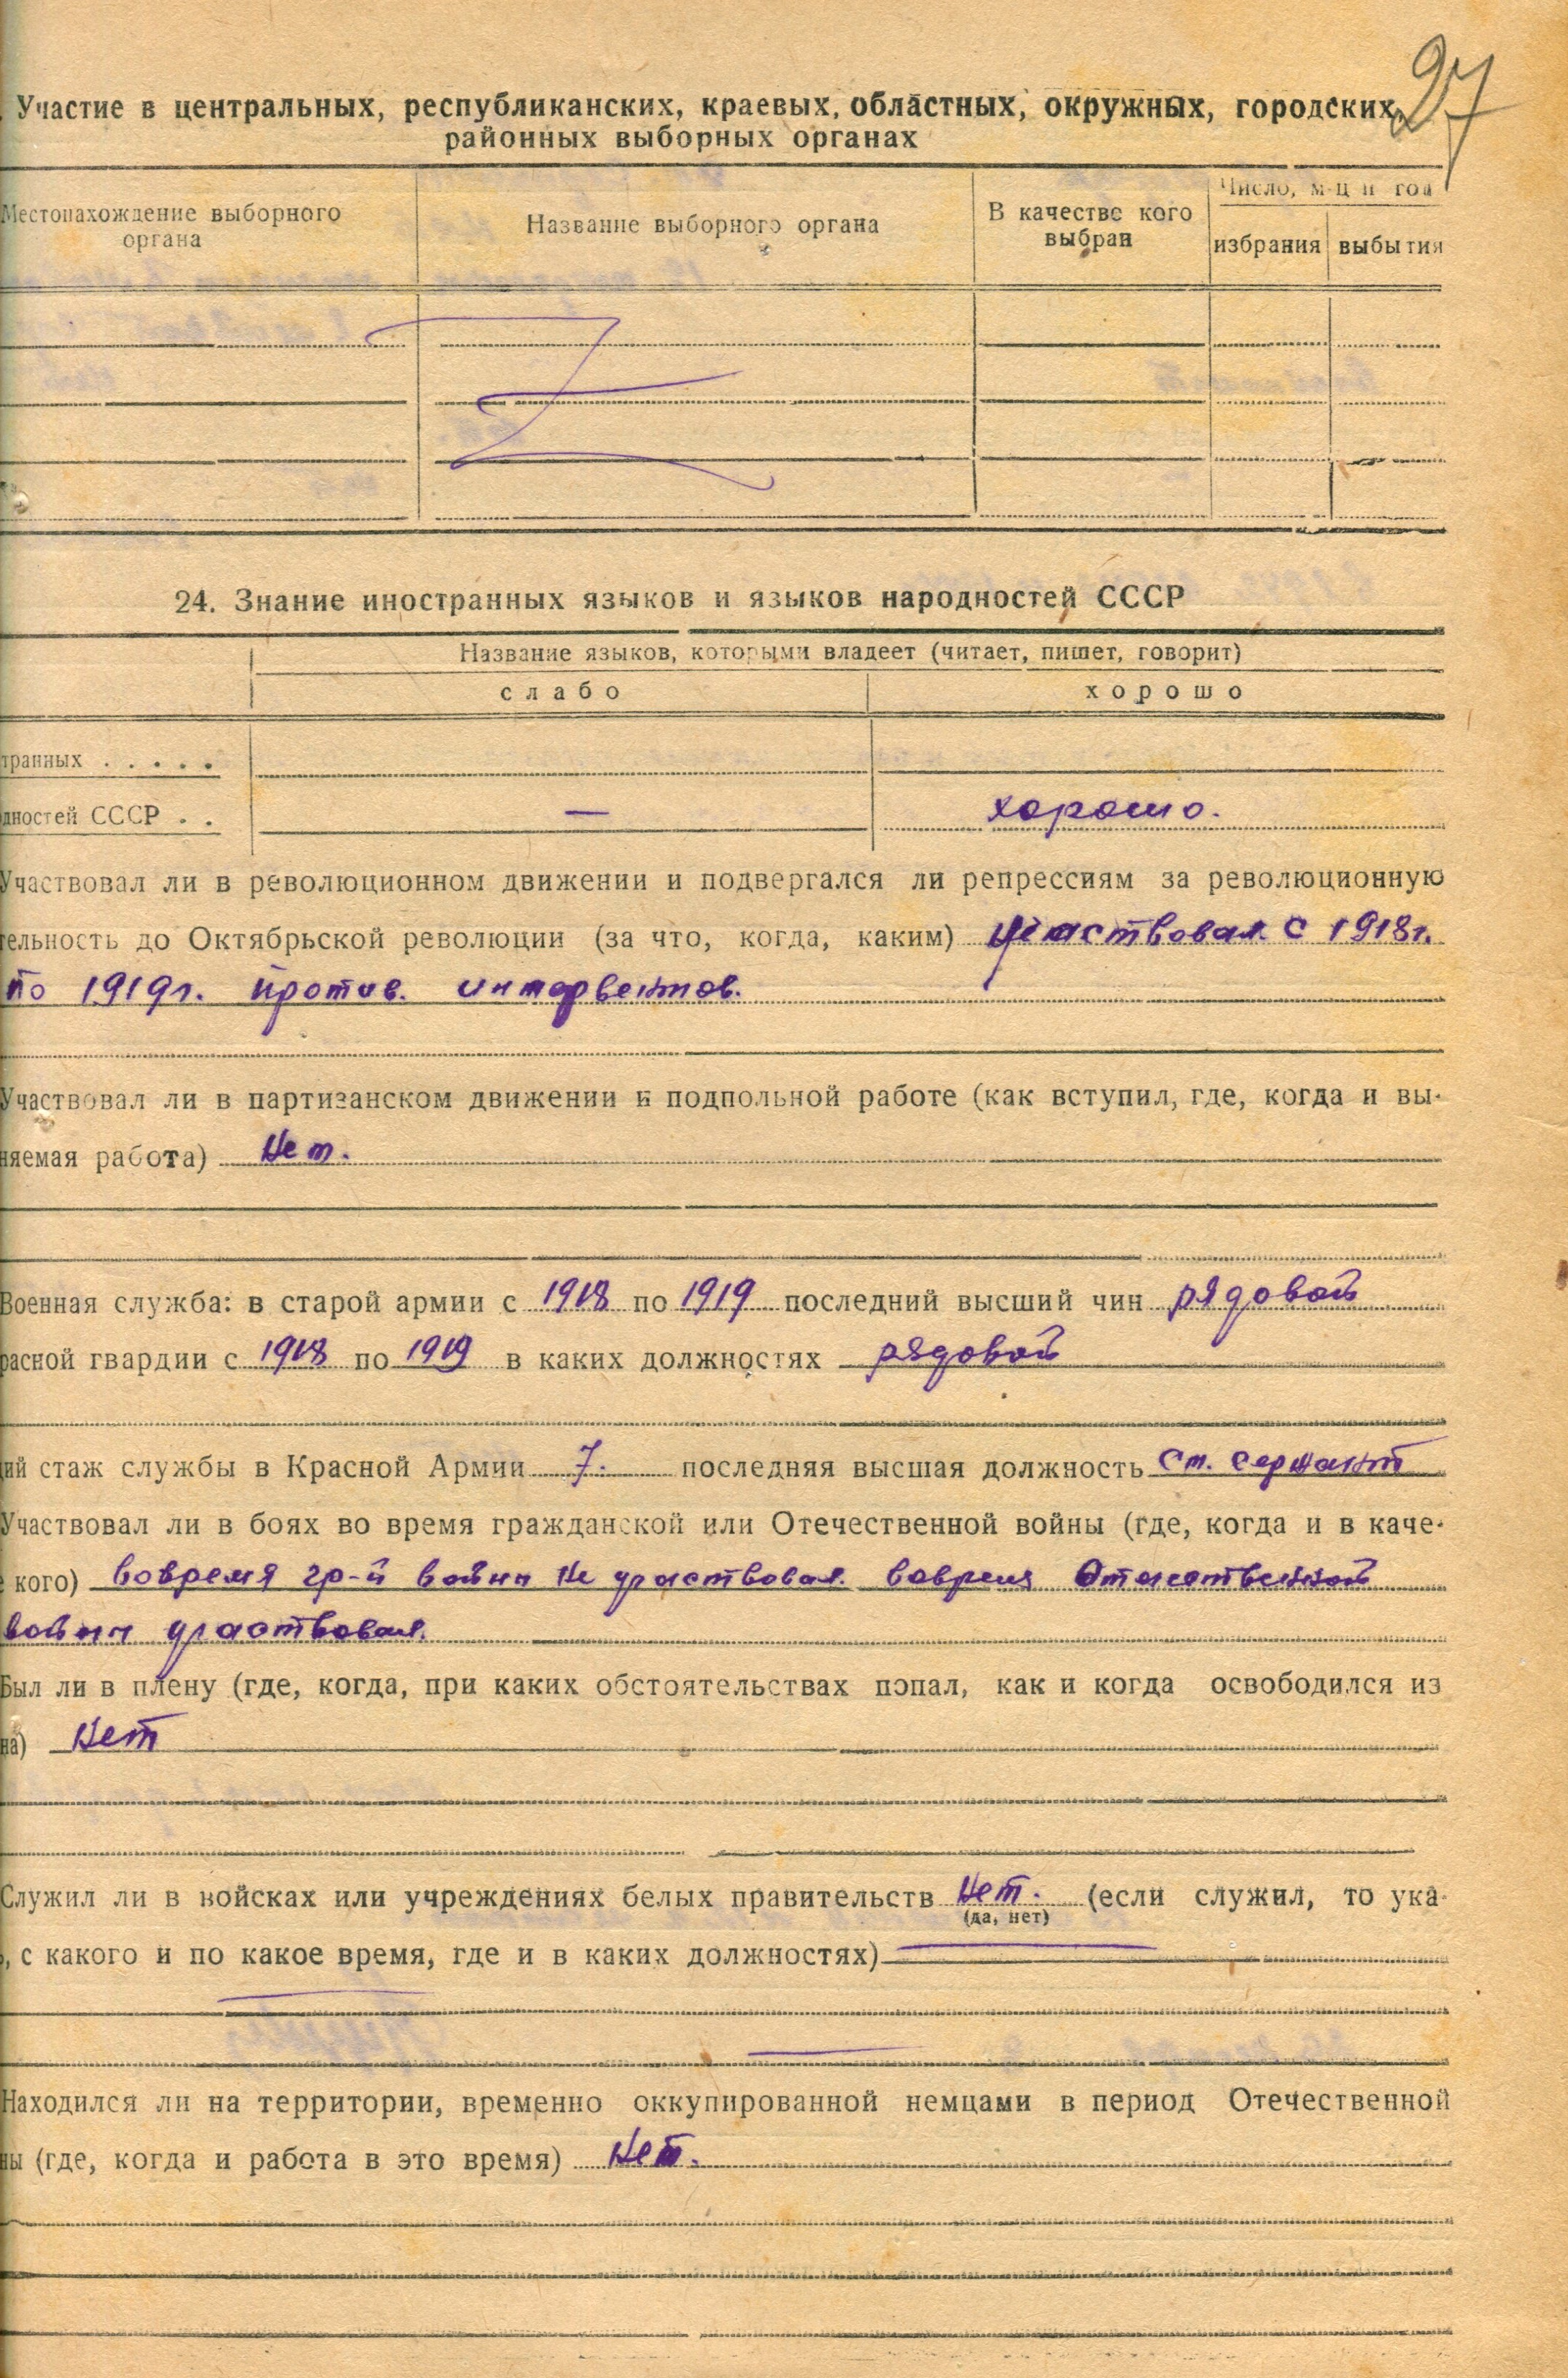 27
Участие в центральных, республиканских, краевых, областных, окружных, городских,
районных выборных органах
Местонахождение выборного органа
Название выборного органа
В качестве кого выбран
Число, м-ц и год
избрания
выбытия
24. Знание иностранных языков и языков народностей СССР
Название языков, которыми владеет (читает, пишет, говорит)
слабо
хорошо
транных . . . . .
дностей СССР . . — хорошо.
Участвовал ли в революционном движении и подвергался ли репрессиям за революционную
тельность до Октябрьской революции (за что, когда, каким) Участвовал с 1918г.
по 1919г. против. интервентов.
Участвовал ли в партизанском движении и подпольной работе (как вступил, где, когда и вы-
няемая работа) Нет.
Военная служба: в старой армии с 1918 по 1919 последний высший чин рядовой
расной гвардии с 1918 по 1919 в каких должностях рядовой
ий стаж службы в Красной Армии 7. последняя высшая должность Ст. сержант
Участвовал ли в боях во время гражданской или Отечественной войны (где, когда и в каче-
кого) вовремя гр-й войны не участвовал. вовремя Отечественной
войны участвовал.
Был ли в плену (где, когда, при каких обстоятельствах попал, как и когда освободился из
на) Нет
Служил ли в войсках или учреждениях белых правительств Нет. (если служил, то ука-
(да, нет)
, с какого и по какое время, где и в каких должностях)
Находился ли на территории, временно оккупированной немцами в период Отечественной
ны (где, когда и работа в это время) Нет.